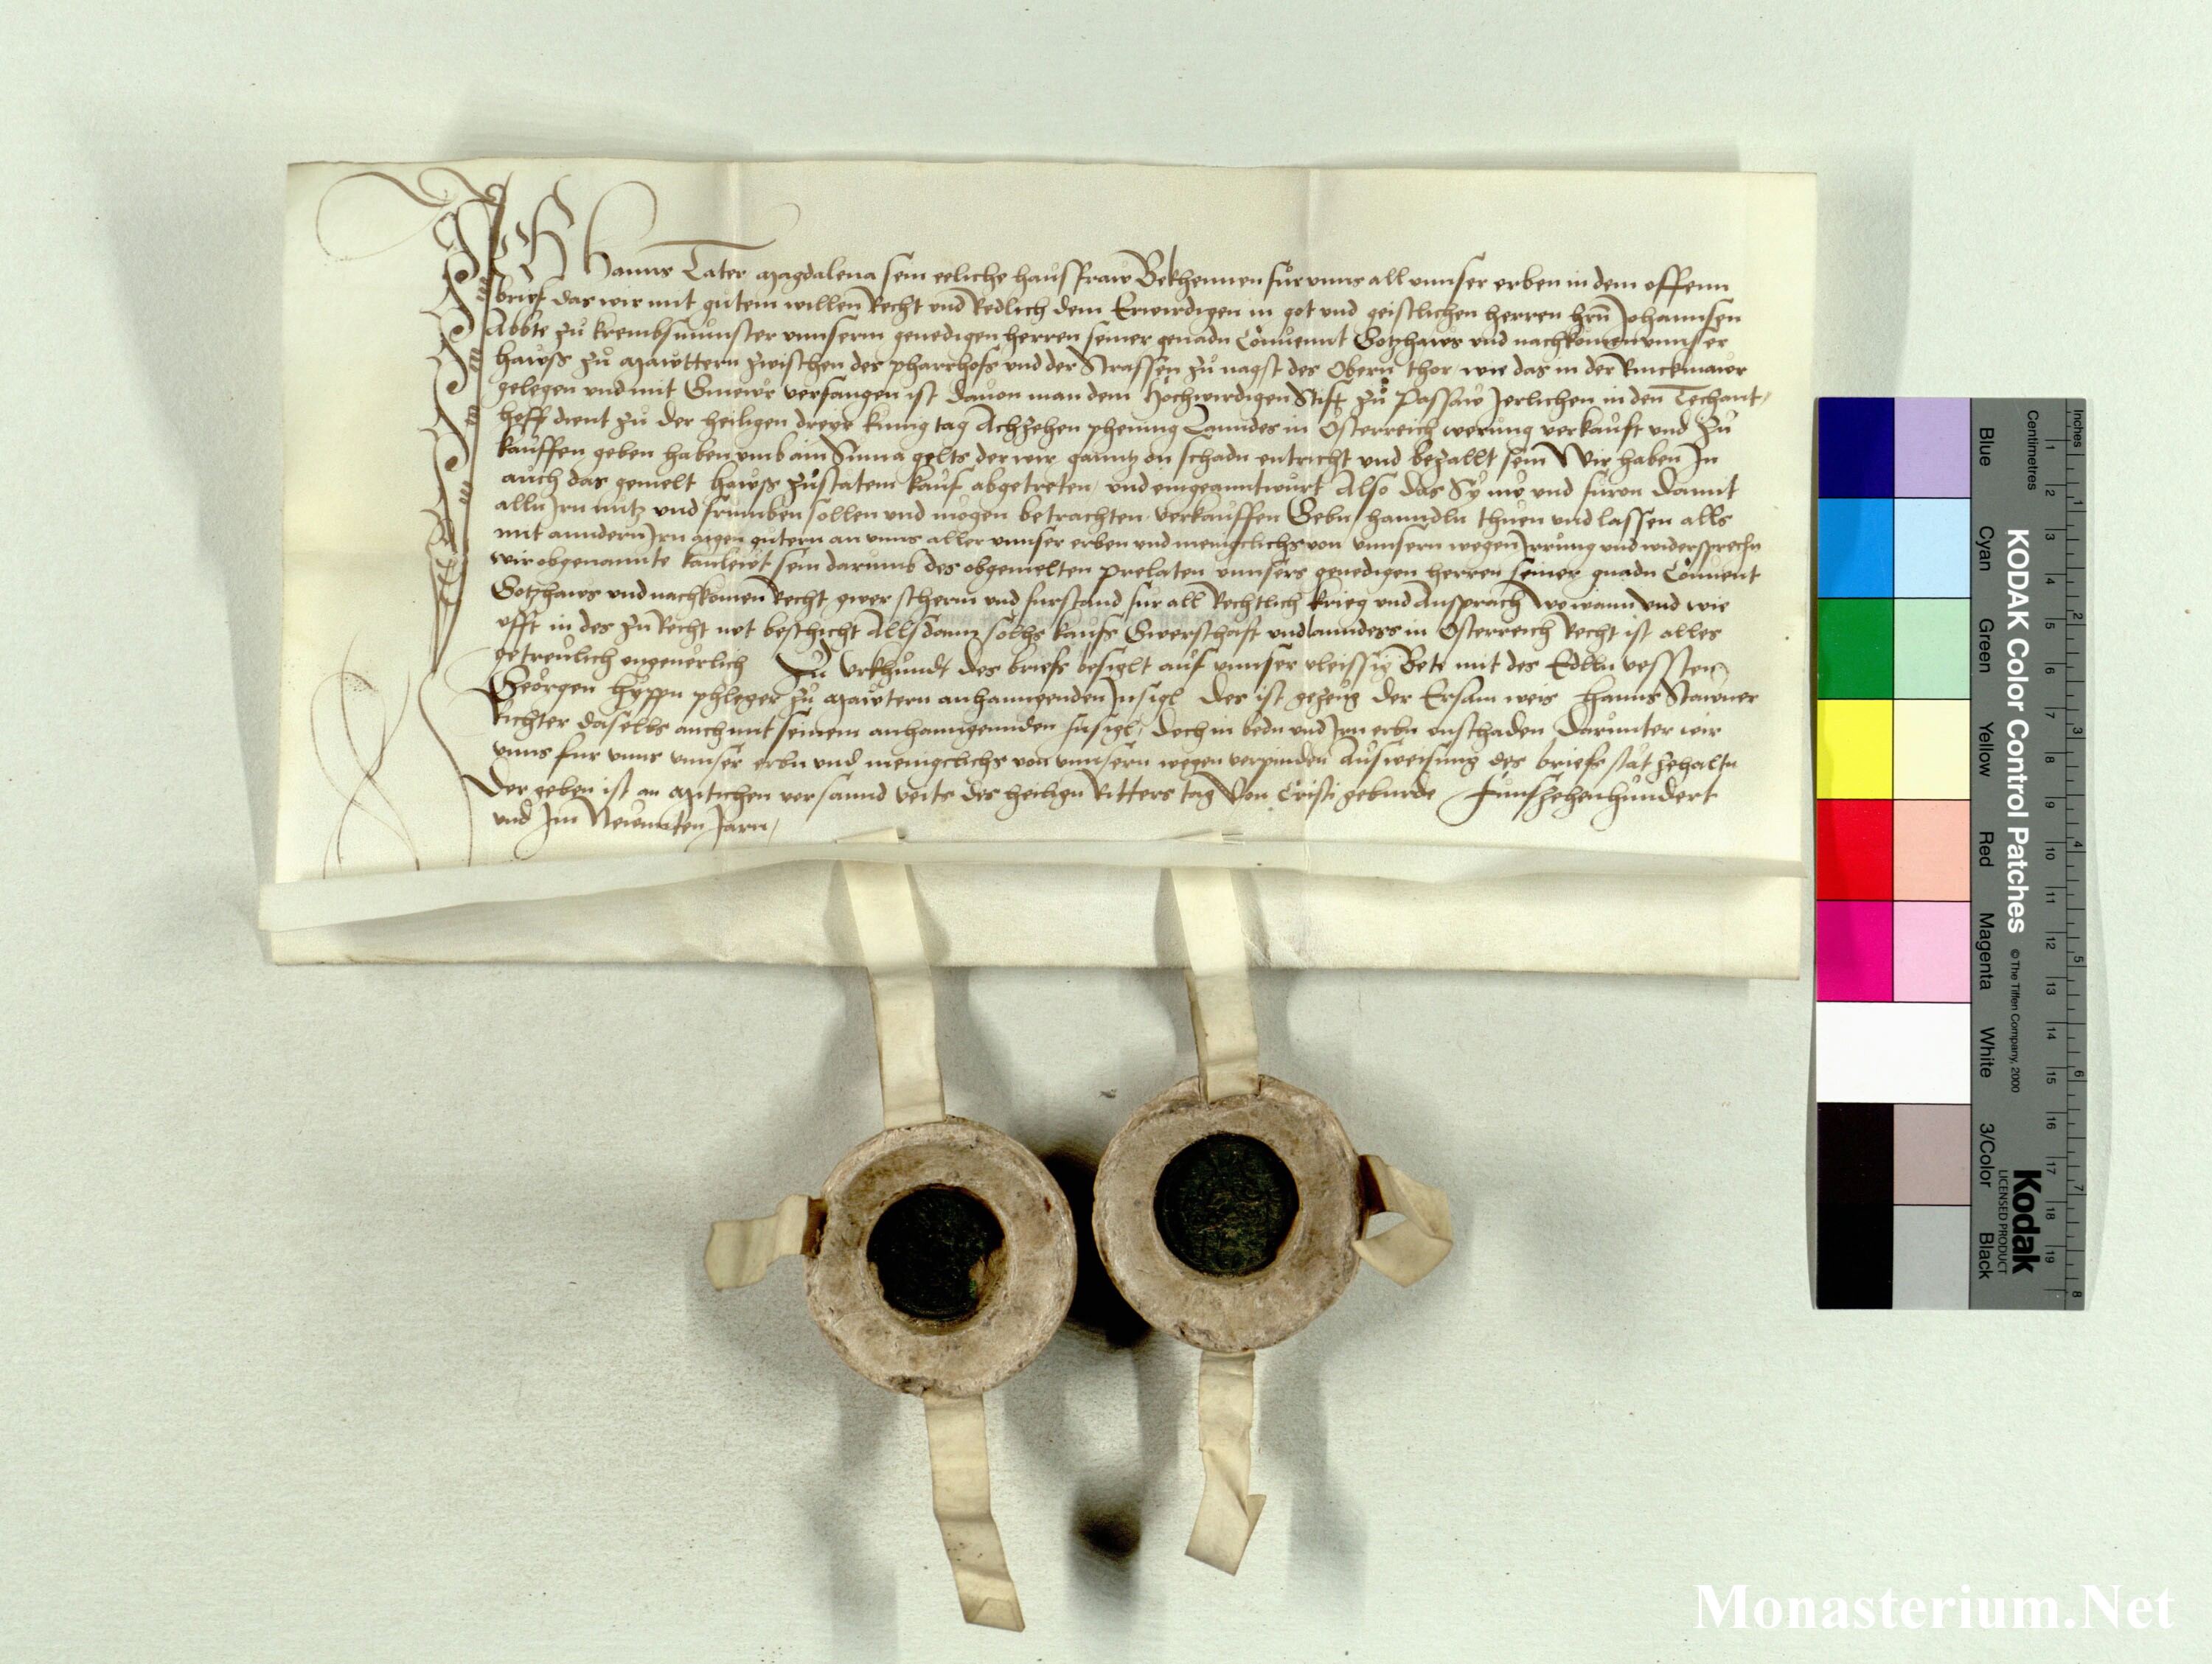 Ich Hanns Tater Magdalena sein eeliche hausfraw Bekhennen für vnns all vnnser erben in dem offenn
brief das wir mit gutem willen Recht vnd Redlich dem Erwirdigen in got vnd geistlichen herren hrn Johannsen
Abbte zu krembsmunster vnnserm genedigen herren seiner genadn Conuennt Gotzhaws vnd nachkomen vnnser
hawss zu Mawttern zwischen des pharrhofs vnd der Strassen zu nagst des Obern thor wie das in der Rinckmawr
gelegen vnd mit Gmewr verfangen ist dauon man dem Hochwirdigen Stift zu Passaw Jerlichen in den Techant
hoff dient zu der heiligen dreyr kunig tag Achzehen phening Lanndes in Osterreich werung verkauft vnd zu
kauffen geben haben vmb ain Suma gelts der wir ganntz on schadn entricht vnd bezallt sein Wir haben In
auch das gemelt hawss zustatem kauf abgetreten vnd eingeanntwurt Also das Sy nw vnd furon damit
alln Jrn nutz vnd frumben sollen vnd mogen betrachten verkauffen Gebn hanndln thuen vnd lassen alls
mit anndern Jrn aigen gutern an vnns aller vnnser erben vnd meingclichs von vnnsern wegen Jrrung vnd widersprechn
wir obgenannte kanlewt sein darumb des obgemelten prelaten vnnsers genedigen herren seiner gnadn Conuent
Gotzhaws vnd nachkomen Recht gwer scherm vnd furstand fur all Rechtlich krieg vnd Ansprach wo wann vnd wie
offt in des zu Recht not beschicht Allsdann solhs kaufs Gwerschaft vnd lanndess in Osterreich Recht ist alles
getreulich ongeuerlich Zu vrkhundt des briefs besiglt auf vnnser vleissig Bete mit des Edlln vessten
Georgen Hyppn phleger zu Mawtern anhanngenden Insigl Des ist gezeug der Ersam weis Hanns Stawner
Richter daselbs auch mit seinem anhanngennden Insigl doch in bedn vnd Jrn erbn onschaden Darunter wir
vnns fur vnns vnnser erbn vnd meingclichs von vnnsern wegen verpinden Ausweisung des briefs stat zehaltn
Der geben ist an Mitichen vor sannd Veits des heilign Ritters tag Von Cristi geburde Funfzehenhundert
vnd Jm Newnnten Jarn
KODAK Color Control Patches
© The Tiffen Company, 2000
Kodak
LICENSED PRODUCT
Inches
Centimetres
1 2 3 4 5 6 7 8
1 2 3 4 5 6 7 8 9 10 11 12 13 14 15 16 17 18 19
Blue Cyan Green Yellow Red Magenta White 3/Color Black
Monasterium.Net